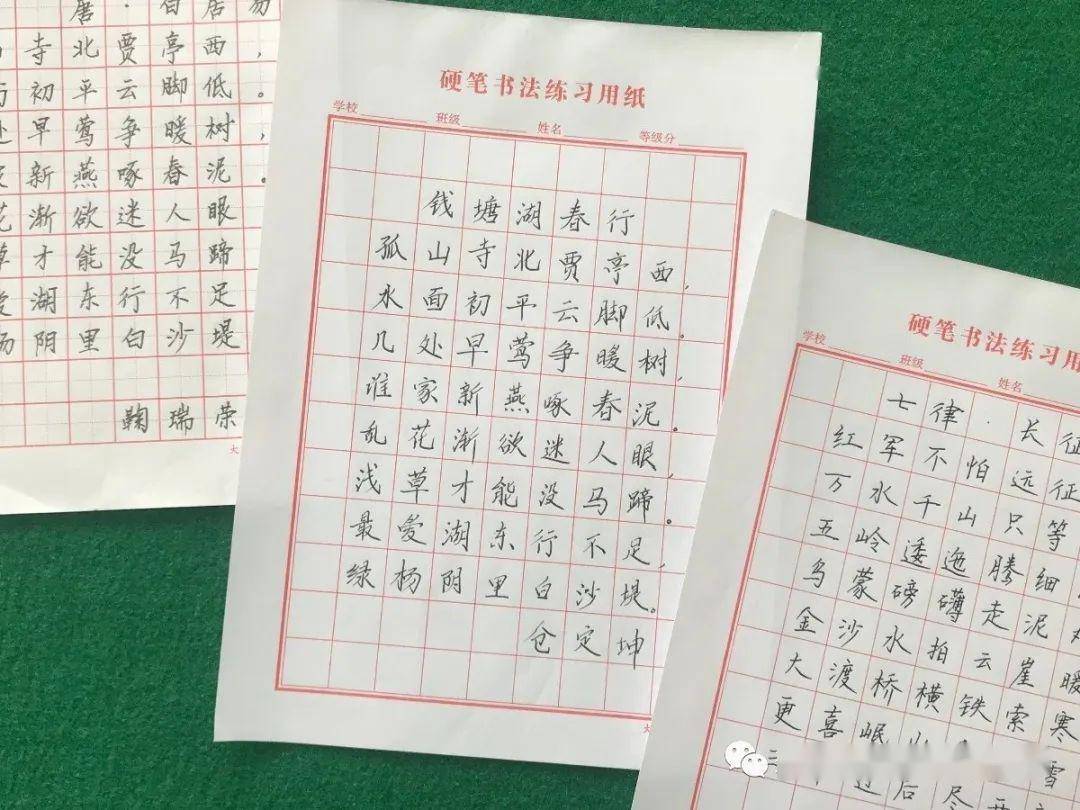 唐·白居易
寺北贾亭西，
初平云脚低。
早莺争暖树，
新燕啄春泥。
渐欲迷人眼
才能没马蹄
湖东行不足
阴里白沙堤
鞠瑞荣
硬笔书法练习用纸
学校 班级 姓名 等级分
钱塘湖春行
孤山寺北贾亭西，
水面初平云脚低。
几处早莺争暖树，
谁家新燕啄春泥。
乱花渐欲迷人眼，
浅草才能没马蹄。
最爱湖东行不足，
绿杨阴里白沙堤。
仓定坤
硬笔书法练习用
学校 班级 姓名
七律·长征
红军不怕远征
万水千山只等
五岭逶迤腾细
乌蒙磅礴走泥
金沙水拍云崖暖
大渡桥横铁索寒
更喜岷山 雪
三 过后尽